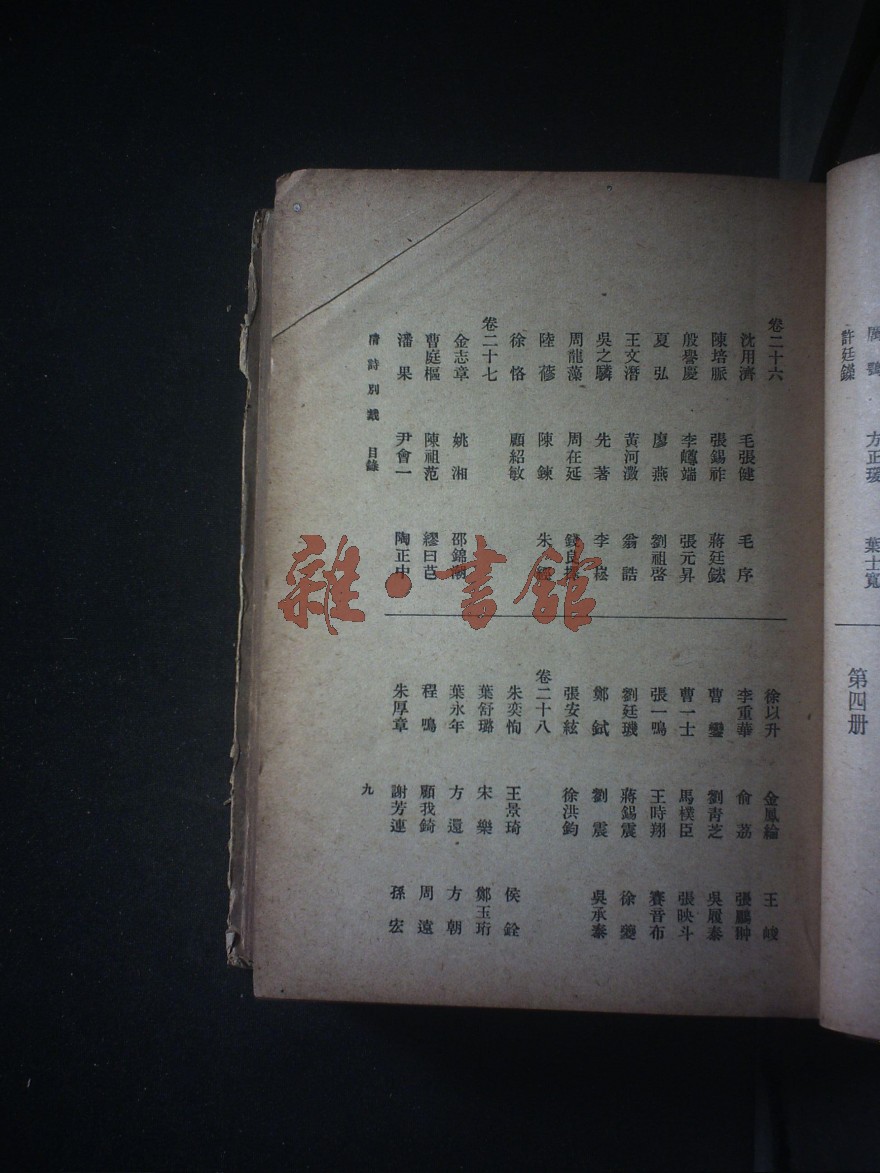 許廷鑅
方正瑗
葉士寬
第四册
卷二十六
沈用濟 毛張健 毛序
陳培脈 張錫祚 蔣廷鋐
殷譽慶 李嶟端 張元昇
夏弘 廖燕 劉祖啓
王文潛 黃河澂 翁誥
吳之驎 先著 李崧
周龍藻 周在延 錢良擇
陸蓚 陳鍊 朱
徐恪 顧紹敏
卷二十七
金志章 姚湘 邵錦潮
曹庭樞 陳祖范 繆曰芑
潘果 尹會一 陶正中
徐以升 金鳳綸 王峻
李重華 俞荔 張鵬翀
曹鑾 劉靑芝 吳履泰
曹一士 馬樸臣 張映斗
張一鳴 王時翔 賽音布
劉廷璣 蔣錫震 徐夔
鄭鉽 劉震 吳承泰
張安絃 徐洪鈞
卷二十八
朱奕恂 王景琦 侯銓
葉舒璐 宋樂 鄭玉珩
葉永年 方還 方朝
程鳴 顧我錡 周遠
朱厚章 謝芳連 孫宏
清詩別裁 目錄
九
雜·書館